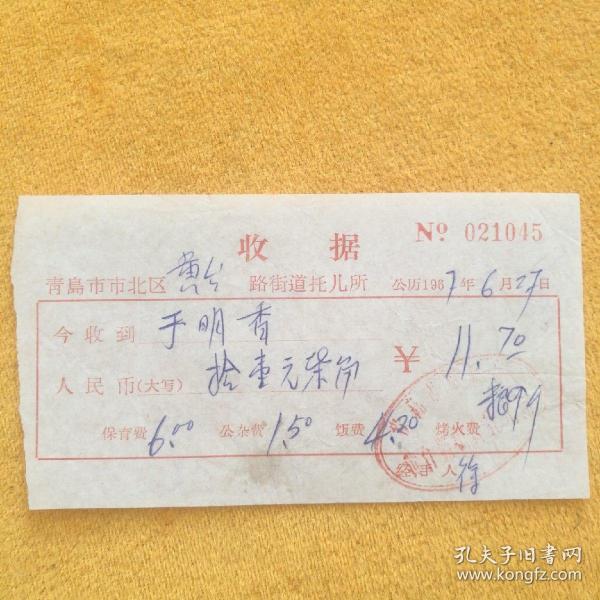 收 据
№ 021045
青島市市北区 黄台 路街道托儿所 公历1967年6月27日
今收到 于明香 ¥ 11.70
人民币(大写) 拾壹元柒角
保育费 6.00 公杂费 1.50 饭费 4.20 烤火费
经手人 徐
孔夫子旧书网
www.kongfz.com